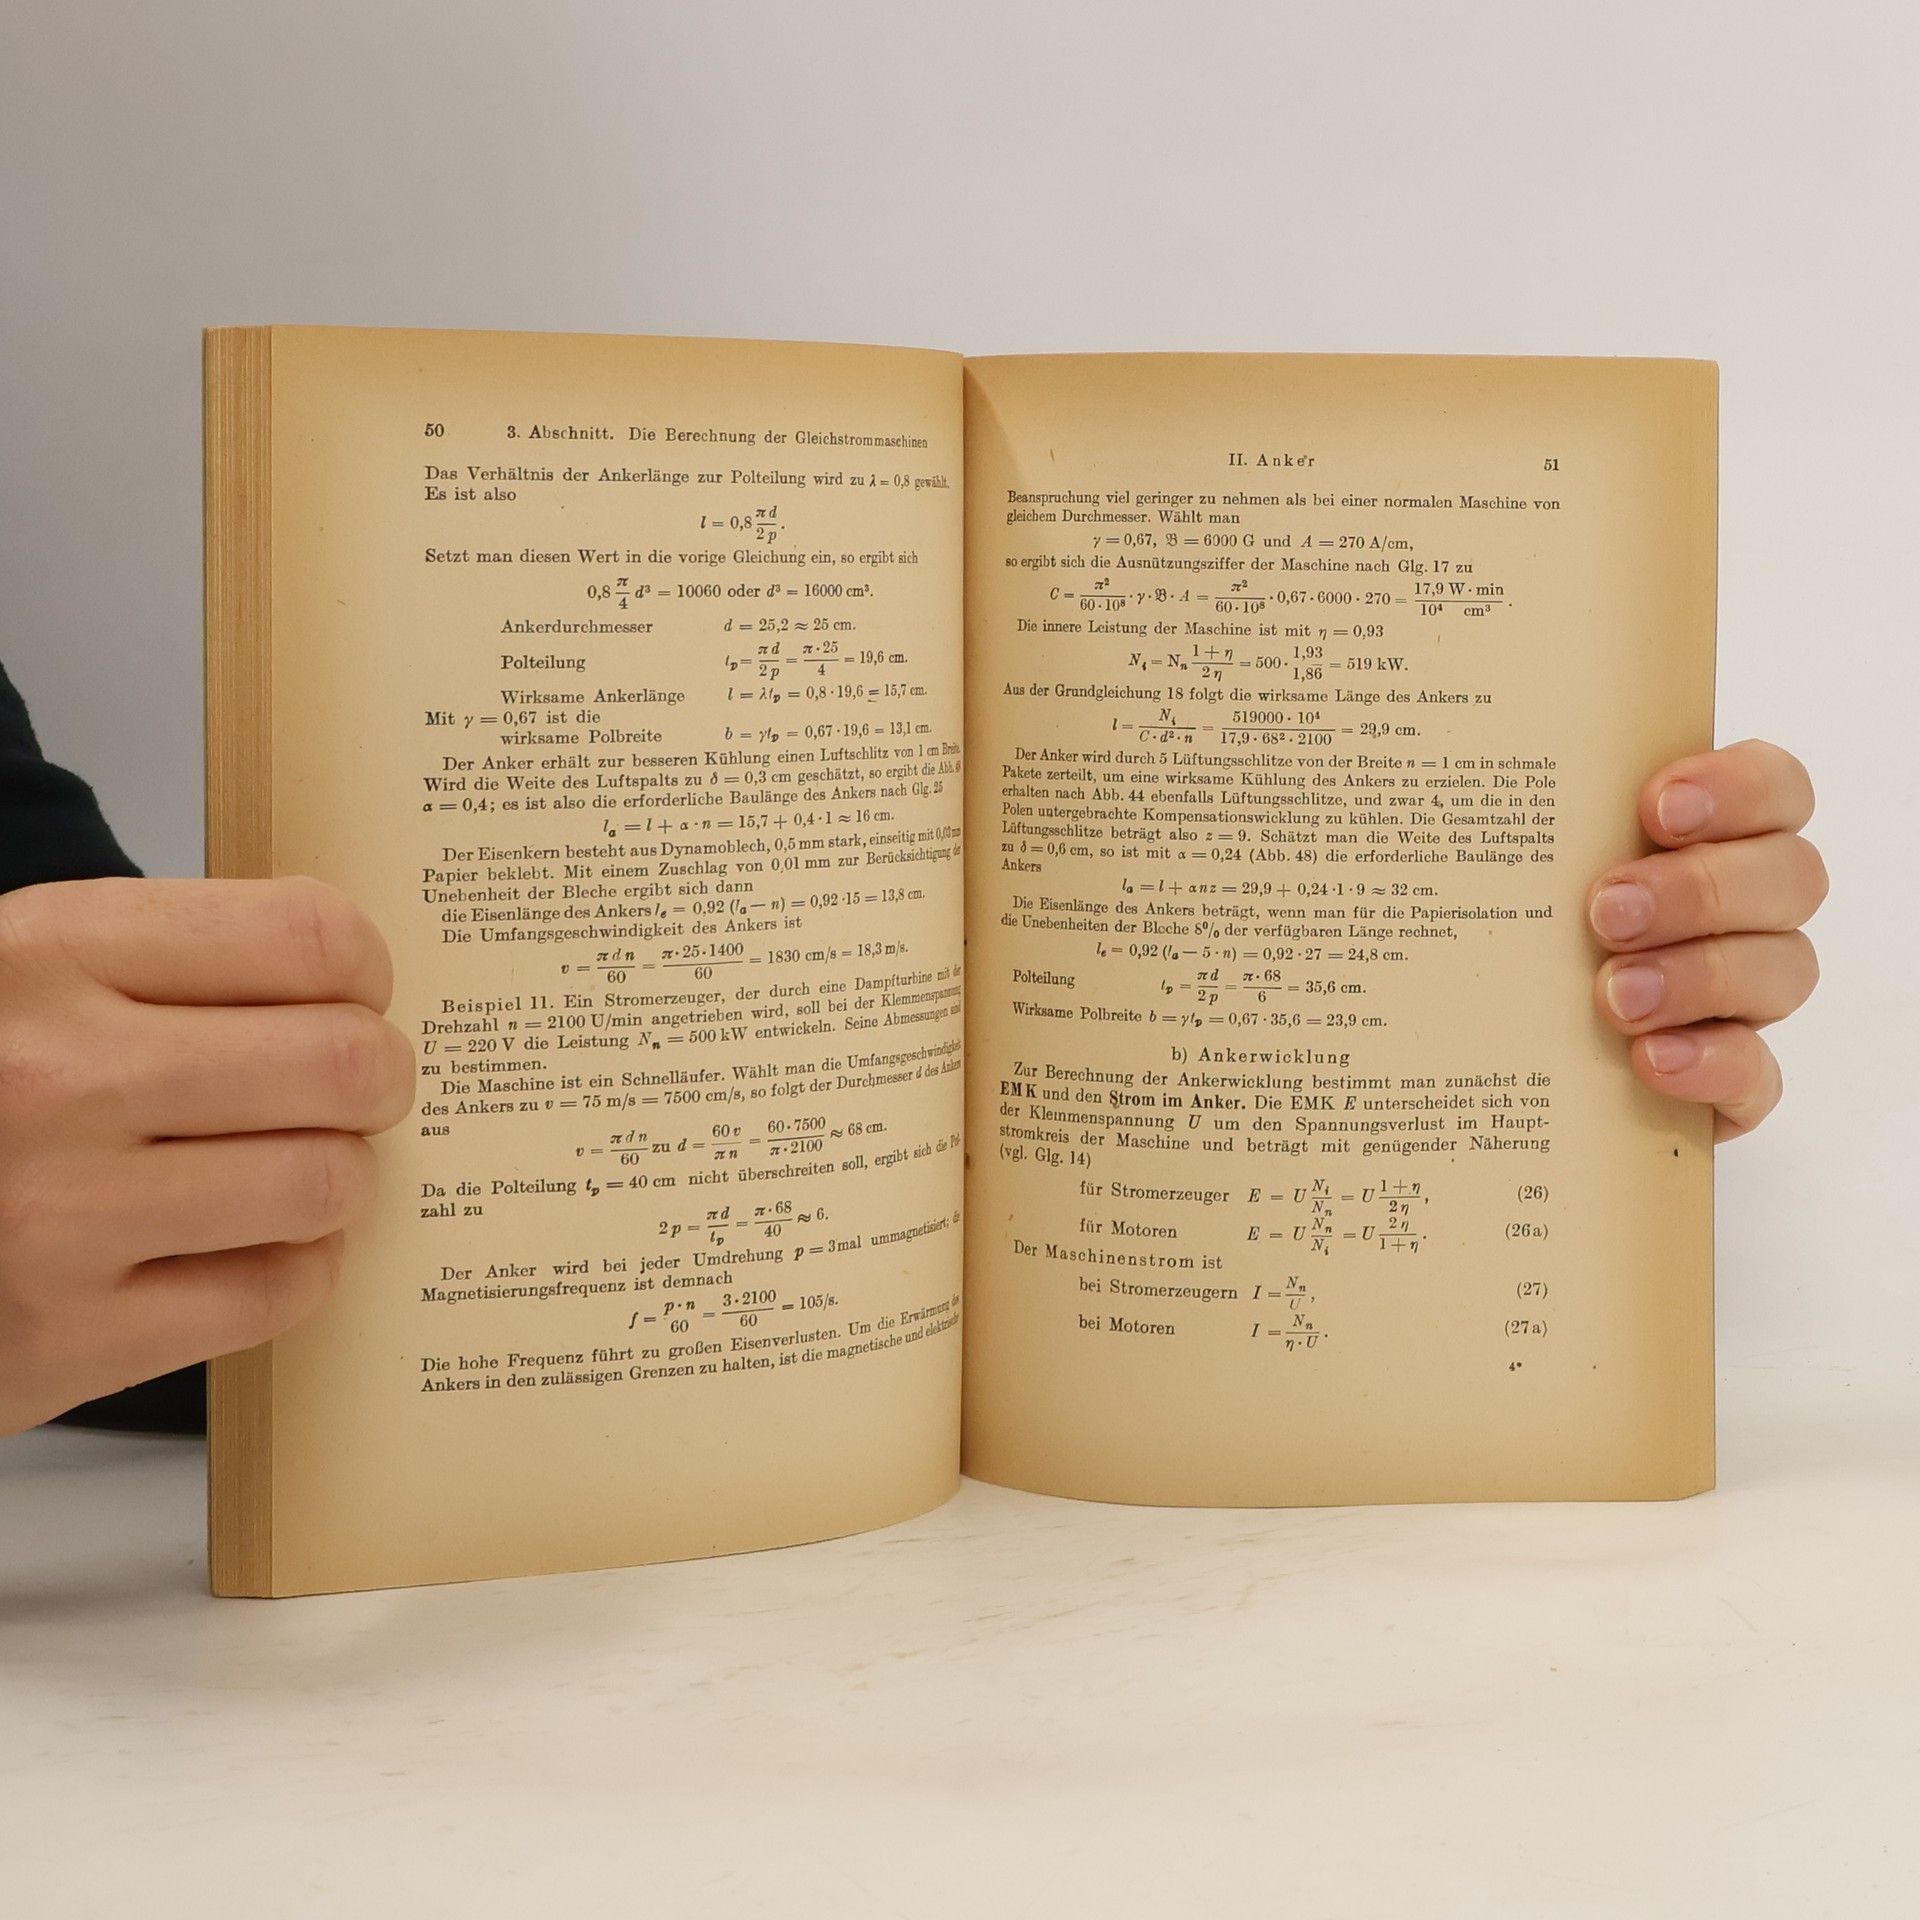 50 3. Abschnitt. Die Berechnung der Gleichstrommaschinen
Das Verhältnis der Ankerlänge zur Polteilung wird zu λ = 0,8 gewählt.
Es ist also
l = 0,8 π d / 2 p .
Setzt man diesen Wert in die vorige Gleichung ein, so ergibt sich
0,8 π / 4 d³ = 10060 oder d³ = 16000 cm³.
Ankerdurchmesser d = 25,2 ≈ 25 cm.
Polteilung tp = π d / 2 p = π · 25 / 4 = 19,6 cm.
Wirksame Ankerlänge l = λtp = 0,8 · 19,6 = 15,7 cm.
Mit γ = 0,67 ist die
wirksame Polbreite b = γtp = 0,67 · 19,6 = 13,1 cm.
Der Anker erhält zur besseren Kühlung einen Luftschlitz von 1 cm Breite.
Wird die Weite des Luftspalts zu δ = 0,3 cm geschätzt, so ergibt die Abb.
α = 0,4; es ist also die erforderliche Baulänge des Ankers nach Glg. 25
la = l + α · n = 15,7 + 0,4 · 1 ≈ 16 cm.
Der Eisenkern besteht aus Dynamoblech, 0,5 mm stark, einseitig mit
Papier beklebt. Mit einem Zuschlag von 0,01 mm zur Berücksichtigung der
Unebenheit der Bleche ergibt sich dann
die Eisenlänge des Ankers le = 0,92 (la — n) = 0,92 · 15 = 13,8 cm.
Die Umfangsgeschwindigkeit des Ankers ist
v = π d n / 60 = π · 25 · 1400 / 60 = 1830 cm/s = 18,3 m/s.
Beispiel 11. Ein Stromerzeuger, der durch eine Dampfturbine mit der
Drehzahl n = 2100 U/min angetrieben wird, soll bei der Klemmenspannung
U = 220 V die Leistung Nn = 500 kW entwickeln. Seine Abmessungen sind
zu bestimmen.
Die Maschine ist ein Schnelläufer. Wählt man die Umfangsgeschwindigkeit
des Ankers zu v = 75 m/s = 7500 cm/s, so folgt der Durchmesser d des Ankers
aus
v = π d n / 60 zu d = 60 v / π n = 60 · 7500 / π · 2100 ≈ 68 cm.
Da die Polteilung tp = 40 cm nicht überschreiten soll, ergibt sich die Pol-
zahl zu
2 p = π d / tp = π · 68 / 40 ≈ 6.
Der Anker wird bei jeder Umdrehung p = 3mal ummagnetisiert; die
Magnetisierungsfrequenz ist demnach
f = p · n / 60 = 3 · 2100 / 60 = 105/s.
Die hohe Frequenz führt zu großen Eisenverlusten. Um die Erwärmung des
Ankers in den zulässigen Grenzen zu halten, ist die magnetische und elektrische
II. Anker 51
Beanspruchung viel geringer zu nehmen als bei einer normalen Maschine von
gleichem Durchmesser. Wählt man
γ = 0,67, 𝔅 = 6000 G und A = 270 A/cm,
so ergibt sich die Ausnützungsziffer der Maschine nach Glg. 17 zu
C = π² / 60 · 10⁸ · γ · 𝔅 · A = π² / 60 · 10⁸ · 0,67 · 6000 · 270 = 17,9 / 10⁴ W · min / cm³ .
Die innere Leistung der Maschine ist mit η = 0,93
Ni = Nn 1 + η / 2 η = 500 · 1,93 / 1,86 = 519 kW.
Aus der Grundgleichung 18 folgt die wirksame Länge des Ankers zu
l = Ni / C · d² · n = 519000 · 10⁴ / 17,9 · 68² · 2100 = 29,9 cm.
Der Anker wird durch 5 Lüftungsschlitze von der Breite n = 1 cm in schmale
Pakete zerteilt, um eine wirksame Kühlung des Ankers zu erzielen. Die Pole
erhalten nach Abb. 44 ebenfalls Lüftungsschlitze, und zwar 4, um die in den
Polen untergebrachte Kompensationswicklung zu kühlen. Die Gesamtzahl der
Lüftungsschlitze beträgt also z = 9. Schätzt man die Weite des Luftspalts
zu δ = 0,6 cm, so ist mit α = 0,24 (Abb. 48) die erforderliche Baulänge des
Ankers
la = l + αnz = 29,9 + 0,24 · 1 · 9 ≈ 32 cm.
Die Eisenlänge des Ankers beträgt, wenn man für die Papierisolation und
die Unebenheiten der Bleche 8% der verfügbaren Länge rechnet,
le = 0,92 (la — 5 · n) = 0,92 · 27 = 24,8 cm.
Polteilung tp = π d / 2 p = π · 68 / 6 = 35,6 cm.
Wirksame Polbreite b = γtp = 0,67 · 35,6 = 23,9 cm.
b) Ankerwicklung
Zur Berechnung der Ankerwicklung bestimmt man zunächst die
EMK und den Strom im Anker. Die EMK E unterscheidet sich von
der Klemmenspannung U um den Spannungsverlust im Haupt-
stromkreis der Maschine und beträgt mit genügender Näherung
(vgl. Glg. 14)
für Stromerzeuger E = U Ni / Nn = U 1 + η / 2 η , (26)
für Motoren E = U Nn / Ni = U 2 η / 1 + η . (26a)
Der Maschinenstrom ist
bei Stromerzeugern I = Nn / U , (27)
bei Motoren I = Nn / η · U . (27a)
4*